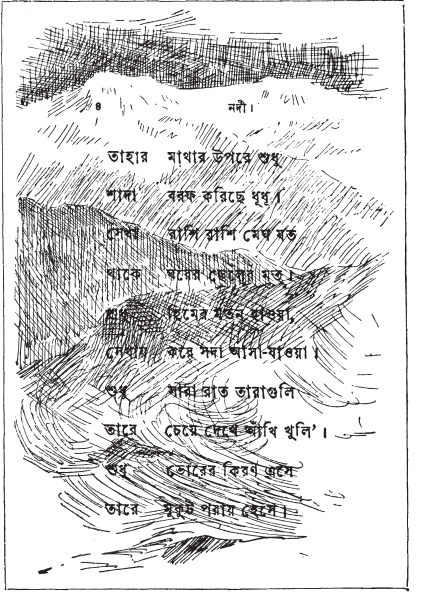 ৪ নদী।
তাহার মাথার উপরে শুধু
শাদা বরফ করিছে ধূধূ।
সেথা রাশি রাশি মেঘ যত
থাকে ঘরের ছেলের মত।
শুধু হিমের মতন হাওয়া,
সেথায় করে সদা আসা-যাওয়া।
শুধু সারা রাত তারাগুলি
তারে চেয়ে দেখে আঁখি খুলি’।
শুধু ভোরের কিরণ এসে
তারে মুকুট পরায় হেসে।